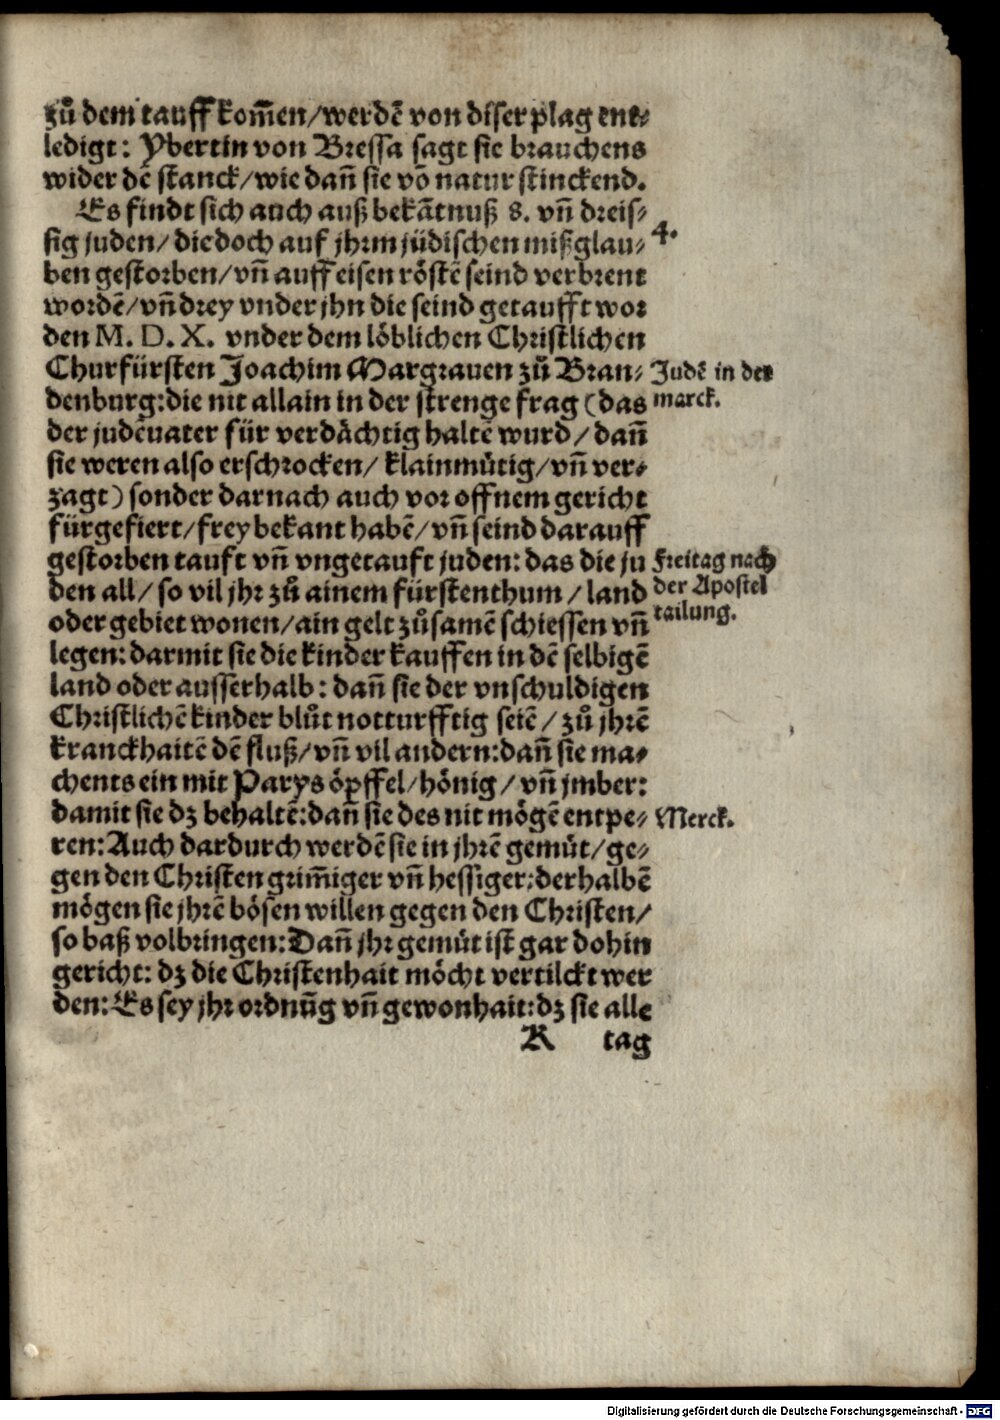 zů dem tauff kom̄en/werdē von diser plag ent⸗
ledigt: Ybertin von Bressa sagt sie brauchens
wider dē stanck/wie dan̄ sie vō natur stinckend.
Es findt sich auch auß bekātnuß 8. vn̄ dreis⸗
sig juden/die doch auf jhrm jüdischen mißglau⸗
4.
ben gestorben/vn̄ auff eisen röstē seind verbrent
wordē/vn̄ drey vnder jhn die seind getaufft wor
den M. D. X. vnder dem löblichen Christlichen
Churfürsten Joachim Margrauen zů Bran⸗
Judē in der
marck.
denburg:die nit allain in der strenge frag (das
der judēuater für verdächtig haltē wurd/dan̄
sie weren also erschrocken/klainmütig/vn̄ ver⸗
zagt) sonder darnach auch vor offnem gericht
fürgefiert/frey bekant habē/vn̄ seind darauff
gestorben tauft vn̄ vngetauft juden: das die ju
Freitag nach
der Apostel
tailung.
den all/so vil jhr zů ainem fürstenthum/land
oder gebiet wonen/ain gelt zůsamē schiessen vn̄
legen: darmit sie die kinder kauffen in dē selbigē
land oder ausserhalb: dan̄ sie der vnschuldigen
Christlichē kinder blůt notturfftig seiē/zů jhrē
kranckhaitē dē fluß/vn̄ vil andern:dan̄ sie ma⸗
chents ein mit Parys öpffel/hönig/vn̄ jmber:
damit sie dz behaltē:dan̄ sie des nit mögē entpe⸗
Merck.
ren: Auch dardurch werdē sie in jhrē gemüt/ge⸗
gen den Christen grim̄iger vn̄ hessiger:derhalbē
mögen sie jhrē bösen willen gegen den Christen/
so baß volbringen: Dan̄ jhr gemüt ist gar dohin
gericht: dz die Christenhait möcht vertilckt wer
den: Es sey jhr ordnūg vn̄ gewonhait:dz sie alle
K tag
Digitalisierung gefördert durch die Deutsche Forschungsgemeinschaft - DFG